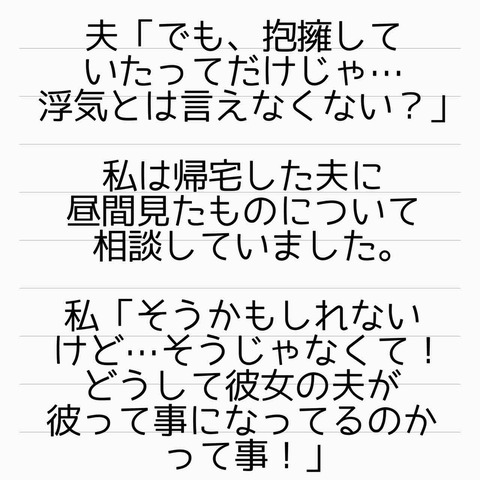 夫「でも、抱擁して
いたってだけじゃ…
浮気とは言えなくない？」
私は帰宅した夫に
昼間見たものについて
相談していました。
私「そうかもしれない
けど…そうじゃなくて！
どうして彼女の夫が
彼って事になってるのか
って事！」